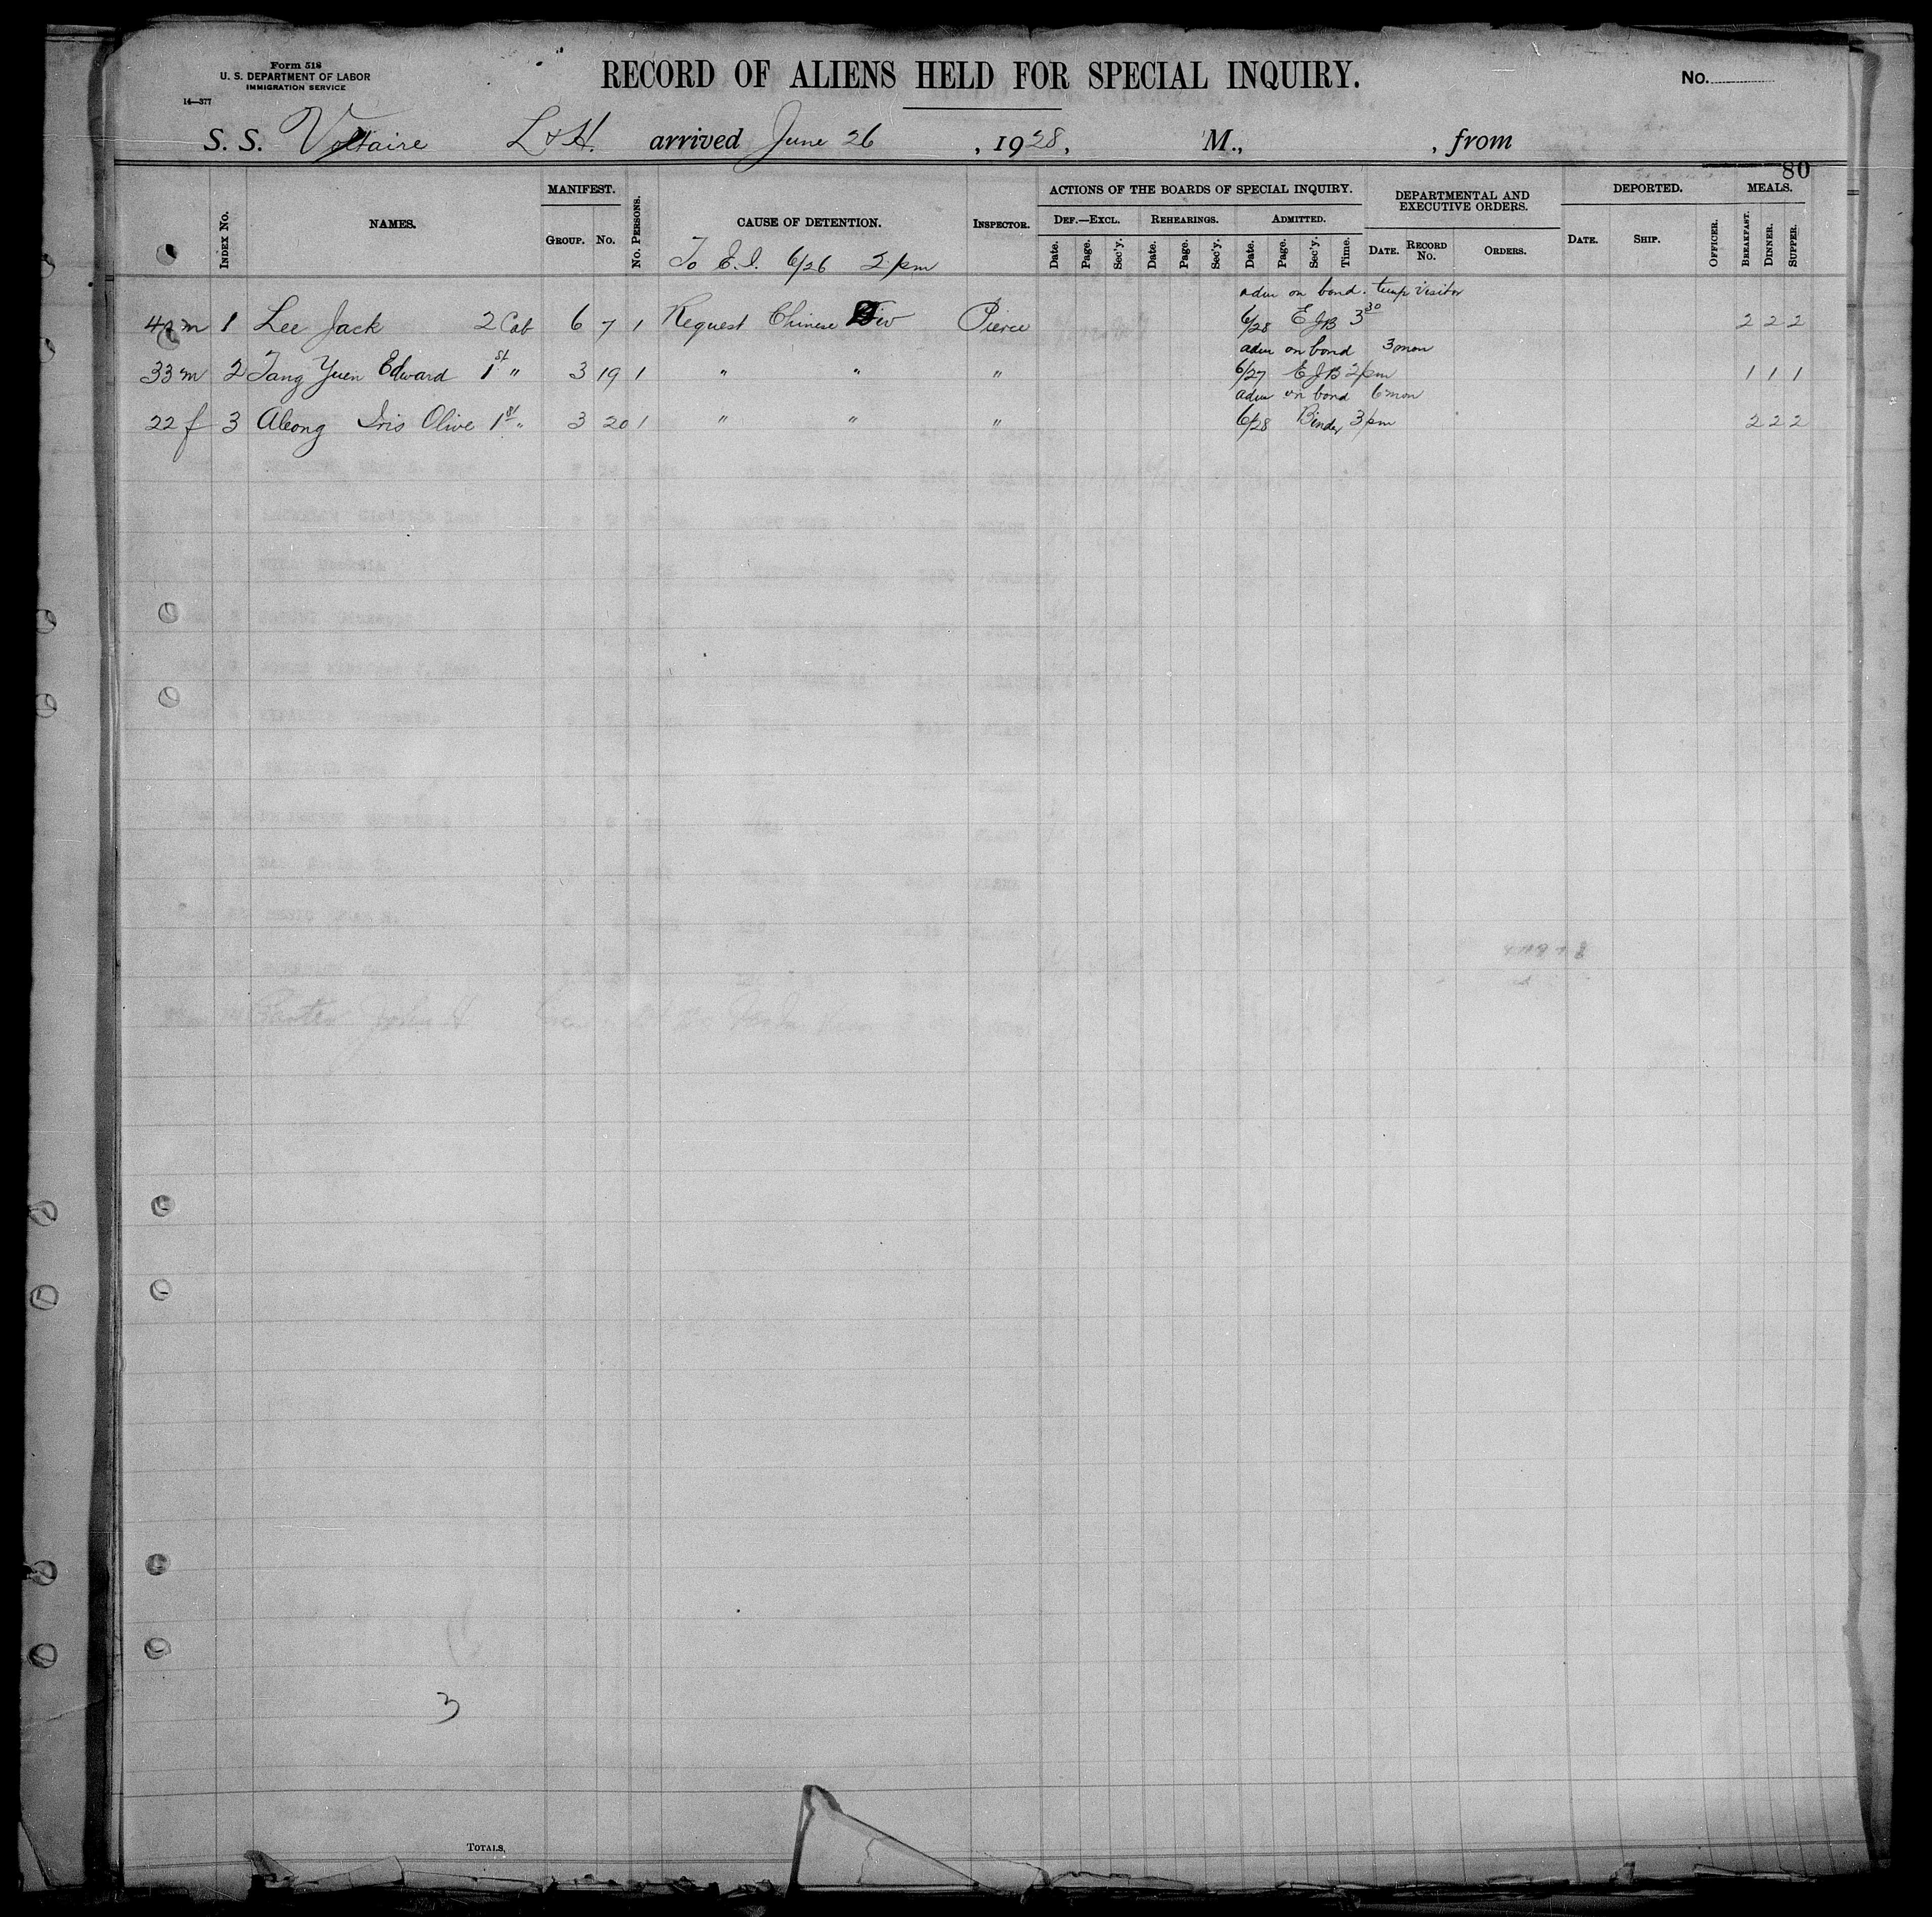 Form 518
U. S. DEPARTMENT OF LABOR
IMMIGRATION SERVICE
14—377
RECORD OF ALIENS HELD FOR SPECIAL INQUIRY.
No.
S. S. Voltaire L & H. arrived June 26, 1928, M., , from
80
INDEX No.
NAMES.
MANIFEST.
GROUP. No.
No. PERSONS.
CAUSE OF DETENTION.
To E.I. 6/26 2 pm
INSPECTOR.
ACTIONS OF THE BOARDS OF SPECIAL INQUIRY.
DEF.—EXCL. REHEARINGS. ADMITTED.
Date. Page. Sec'y. Date. Page. Sec'y. Date. Page. Sec'y. Time.
DEPARTMENTAL AND EXECUTIVE ORDERS.
DATE. RECORD No. ORDERS.
DEPORTED.
DATE. SHIP. OFFICER.
MEALS.
BREAKFAST. DINNER. SUPPER.
adm on bond. temp visitor
m 1 Lee Jack 2 Cab 6 7 1 Request Chinese Div Pierce 6/28 EJB 3 30 2 2 2
adm on bond 3 mon
33 m 2 Tang Yuen Edward 1st " 3 19 1 " " " 6/27 EJB 2 pm 1 1 1
adm on bond 6 mon
22 f 3 Aleong Iris Olive 1st " 3 20 1 " " " 6/28 Binder 3 pm 2 2 2
3
TOTALS,